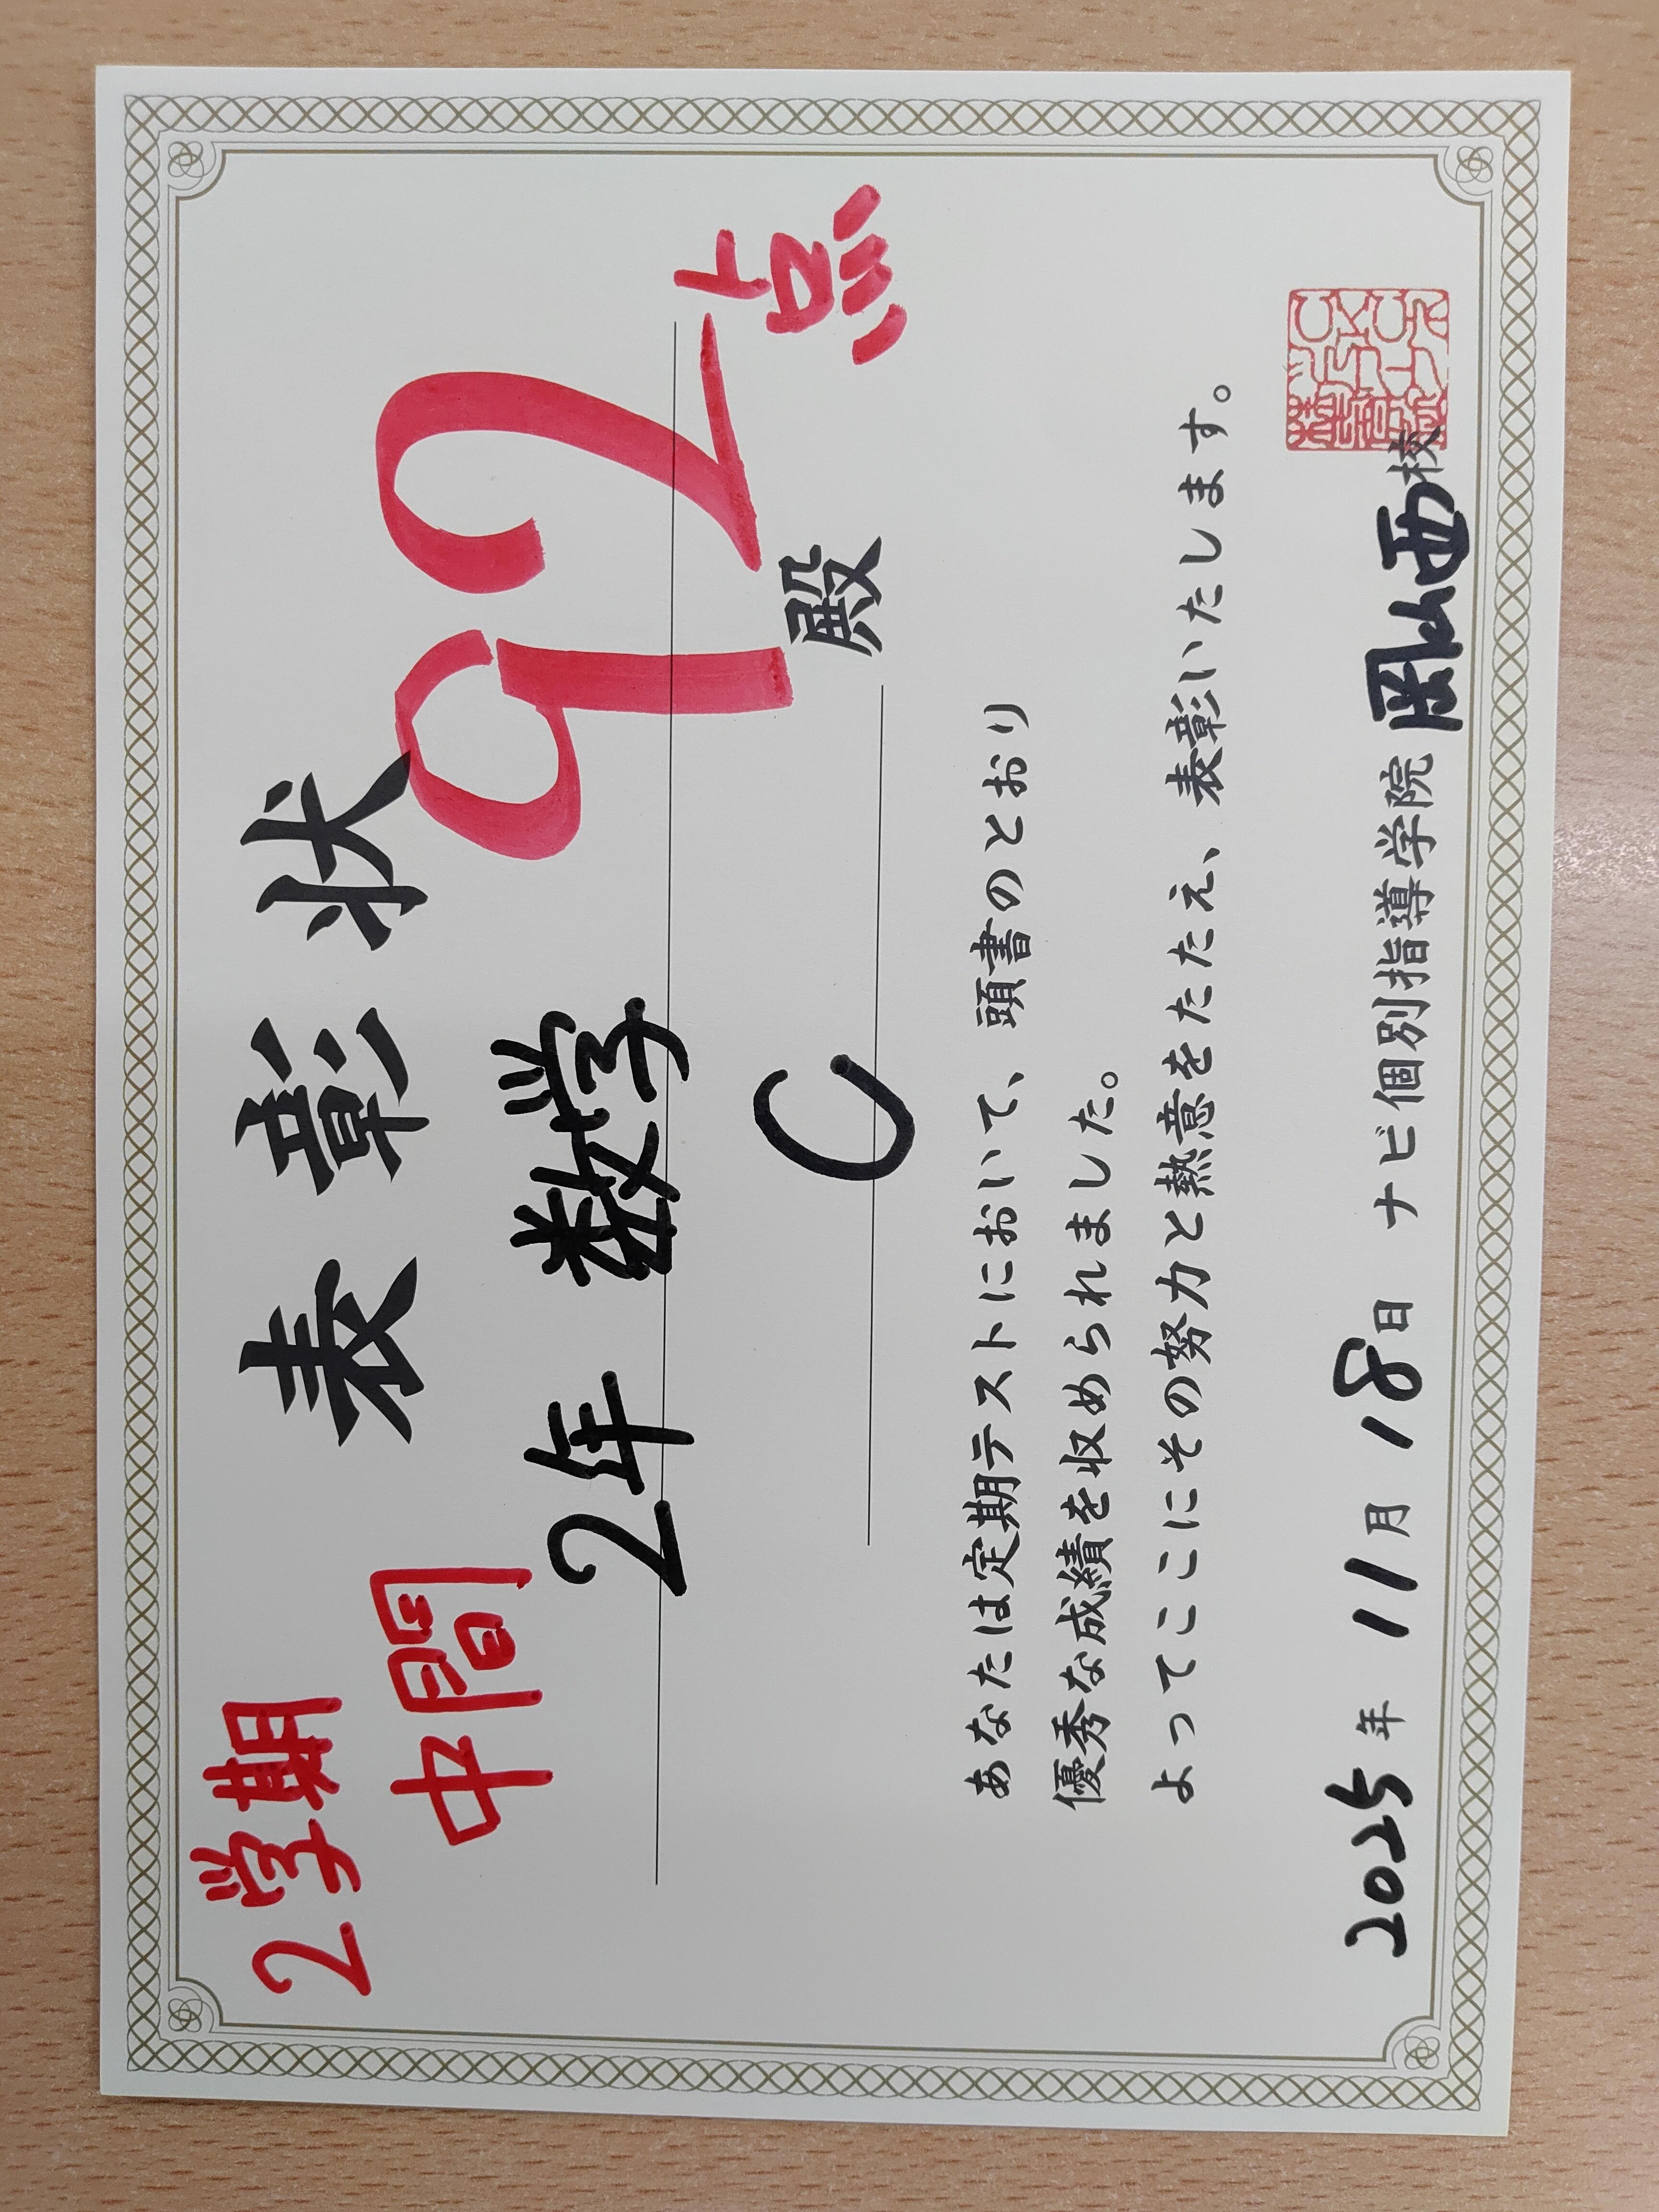 2学期
中間
表彰状
2年 数学 92点
C 殿
あなたは定期テストにおいて、頭書のとおり
優秀な成績を収められました。
よってここにその努力と熱意をたたえ、表彰いたします。
2025年 11月 18日 ナビ個別指導学院 岡山西校